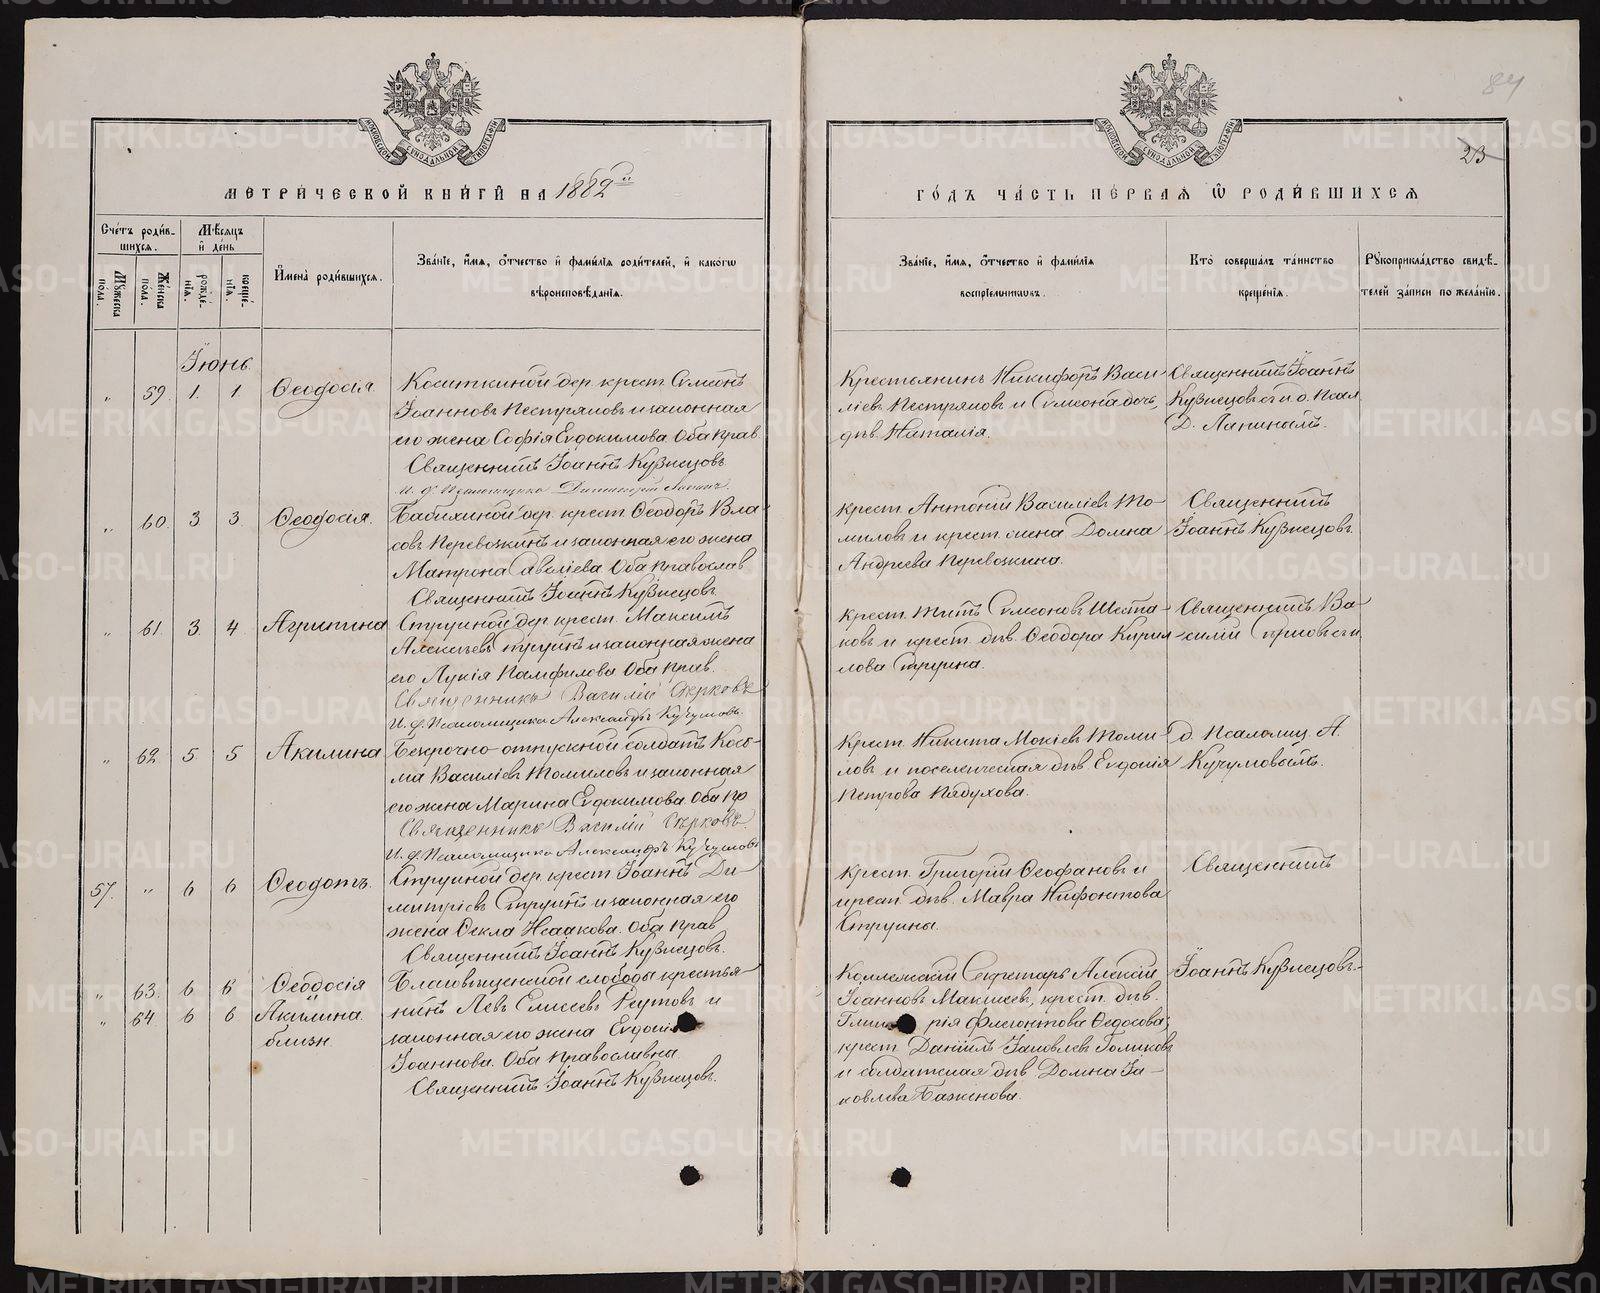 84
23
МОСКОВСКОЙ СУНОДАЛЬНОЙ ТИПОГРАФІИ
МОСКОВСКОЙ СУНОДАЛЬНОЙ ТИПОГРАФІИ
МЕТРИ́ЧЕСКОЙ КНИ́ГИ НА 1882й
ГО́ДЪ ЧА́СТЬ ПЕ́РВАЯ Ѡ РОДИ́ВШИХСЯ
Сче́тъ роди́в-
шихся.
Мѣ́сяцъ
и де́нь
Мꙋжеска пола.
Женска пола.
рожде́-
нія.
креще́-
нія.
Имена̀ роди́вшихся.
Зва́нїе, и́мя, о́тчество и фами́лїя роди́телей, и како́гѡ
вѣроисповѣ́данїя.
Зва́нїе, и́мя, о́тчество и фами́лїя
воспрїе́мниковъ.
Кто̀ соверша́лъ та́инство
креще́нїя.
Рꙋкоприкла́дство свидѣ́-
телей за́писи по жела́нїю.
Іюнь
„ 59. 1. 1. Ѳеодосія
Коситкиной дер. крест. Симеонъ
Іоанновъ Пестряковъ и законная
его жена Софія Евдокимова. Оба прав
Священникъ Іоаннъ Кузнецовъ
И. д. Псаломщика Димитрій Лапинъ.
Крестьянинъ Никифоръ Васи-
ліевъ Пестряковъ и Симеона дочь,
дѣв. Наталія.
Священникъ Іоаннъ
Кузнецовъ съ и. д. Псал.
Д. Лапинымъ.
„ 60. 3 3. Ѳеодосія.
Бабихиной дер. крест. Ѳеодоръ Вла-
совъ Перевозкинъ и законная его жена
Матрона Савеліева. Оба православ
Священникъ Іоаннъ Кузнецовъ
крест. Антоній Василіевъ То-
миловъ и крест. жена Домна
Андреева Перевозкина.
Священникъ
Іоаннъ Кузнецовъ.
„ 61 3. 4 Агрипина
Струиной дер. крест. Максимъ
Алексѣевъ Струинъ и законная жена
его Лукія Памфилова. Оба прав.
Священникъ Василій Сѣрковъ
И. д. Псаломщика Александръ Кучумовъ.
крест. Титъ Симеоновъ Шеста-
ковъ и крест. дѣв. Ѳеодора Кирил-
лова Струина.
Священникъ Ва-
силій Сѣрковъ
„ 62 5 5 Акилина
Безсрочно-отпускной солдатъ Кось-
ма Василіевъ Томиловъ и законная
его жена Марина Евдокимова. Оба пр
Священникъ Василій Сѣрковъ.
И. д. Псаломщика Александръ Кучумовъ
Крест. Никита Мокіевъ Томи-
ловъ и поселенческая дѣв. Евдокія
Петрова Пядухова.
д. Псаломщ. А.
Кучумовымъ.
57. „ 6 6 Ѳеодотъ.
Струиной дер. крест. Іоаннъ Ди-
митріевъ Струинъ и законная его
жена Ѳекла Исаакова. Оба прав
Священникъ Іоаннъ Кузнецовъ.
крест. Григорій Ѳеофановъ и
крест. дѣв. Мавра Нифонтова
Струины.
Священникъ
„ 63. 6 6 Ѳеодосія
„ 64 6 6 Акилина.
близн
Благовѣщенской слободы крестья-
нинъ Левъ Елисеевъ Реутовъ и
законная его жена Евдокія
Іоаннова. Оба православны.
Священникъ Іоаннъ Кузнецовъ.
Коллежскій Секретарь Алексій
Іоанновъ Макшеевъ, крест. дѣв.
рія Флегонтова Ѳедосова;
крест. Даніилъ Іаковлевъ Голиковъ
и солдатская дѣв. Домна Іа-
ковлева Баженова.
Іоаннъ Кузнецовъ.
METRIKI.GASO-URAL.RU